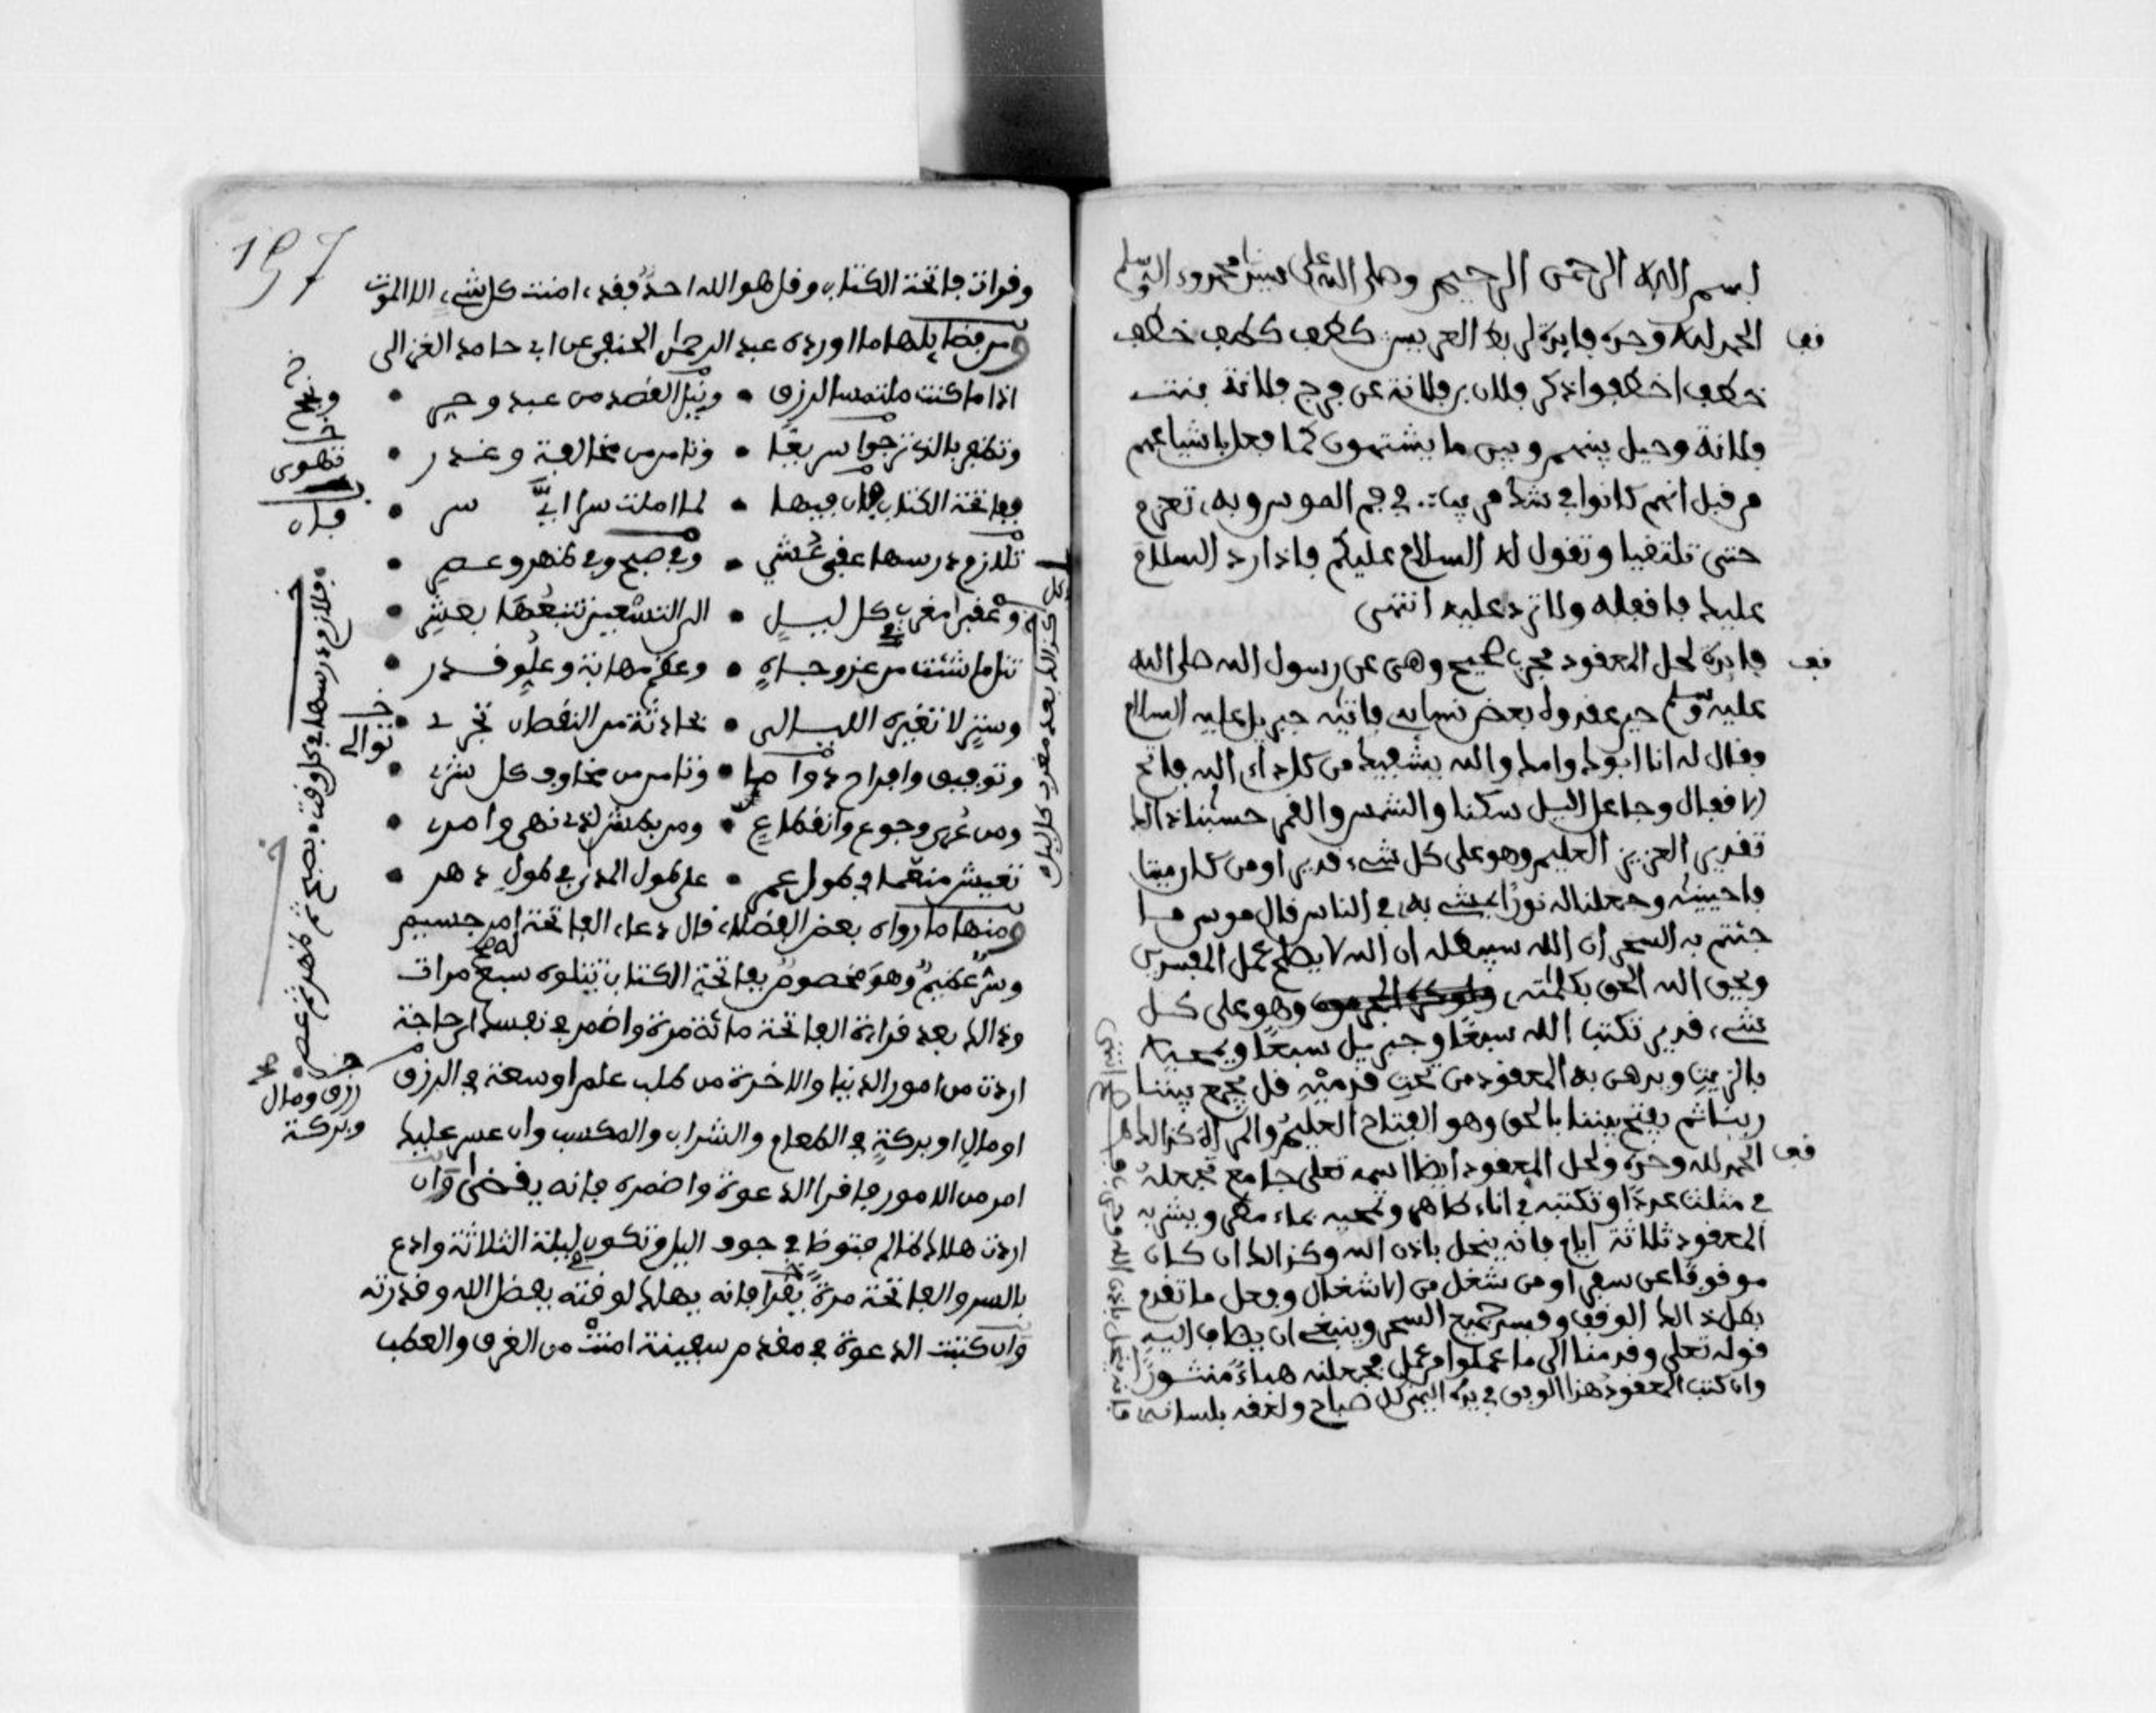 بسم الله الرحمن الرحيم وصلى الله على سيدنا محمد وءاله وسلم
قف
الحمد لله وحده فايدة لربط العريس كطف كطف خطف
خطف اخطفوا ذكر فلان بن فلانة عن فرج فلانة بنت
فلانة وحيل بينهم وبين ما يشتهون كما فعل باشياعهم
من قبل انهم كانوا في شك مريب في فم الموس وبه تعزم
حتى تلتقيا وتقول له السلام عليكم فاذا رد السلام
عليك فاقفله ولا ترد عليه انتهى
قف
فايدة لحل المعقود مجرب صحيح وهى عن رسول الله صلى الله
عليه وسلم حين عقدوه بعض نسايه فاتته جبريل عليه السلام
وقال له انا ابوك وامك والله يشفيك من كل داء الله فاتح
الاقفال وجاعل اليل سكنا والشمس والقمر حسبنا ذالك
تقدير العزيز العليم وهو على كل شيء قدير اومن كان ميتا
فاحيينه وجعلنا له نورا يمشي به في الناس قال موسى ما
جئتم به السحر ان الله سيبطله ان الله لا يصلح عمل المفسدين
ويحق الله الحق بكلمته ولو كره المجرمون وهو على كل
شيء قدير تكتب الله سبعا وجبريل سبعا ويمحيه
بالزيت ويدهن به المعقود من تحت قدميه قل يجمع بيننا
ربنا ثم يفتح بيننا بالحق وهو الفتاح العليم والمرأة كذالك
قف
الحمد لله وحده ولحل المعقود ايضا اسمه تعلى جامع تجعله
في مثلث عددا او تكتبه في اناء طاهر وتمحيه بماء مطر ويشربه
المعقود ثلاثة ايام فانه ينحل باذن الله وكذالك ان كان
موقوفا عن سفر او من شغل من الاشغال وفعل ما تقدم
بطل ذالك الوقف وفسد جميع السحر وينبغي ان يضاف اليه
قوله تعلى وقدمنا الى ما عملوا من عمل فجعلنه هباء منثورا
وان كتب المعقود هذا الوفق في يده اليمنى كل صباح ولعقه بلسانه فانه ينحل باذن الله
197
وقرات فاتحة الكتاب وقل هو الله احد فقد امنت كل شيء الا الموت
ومن فضايلها ما اورده عبد الرحمن الحنفي عن ابي حامد الغزالى
اذا ما كنت ملتمسا لرزق • ونيل القصد من عبد وحر •
وتظفر بالذى ترجوا سريعا • وتامن من مخالفة وغدر •
ففاتحة الكتاب فان فيها • لما املت سرا اي سر •
تلازم درسها عقبى عشي • وفي صبح وفي ظهر وعصر •
وعقب مغرب في كل ليل • الى التسعين تتبعها بعشر •
تنل ما شئت من عز وجاه • وعظم مهابة وعلو قدر •
وستر لا تغيره الليالى • بحادثة من النقصان تجرى •
وتوفيق وافراح دواما • وتامن من مخاوف كل شر •
ومن عرى وجوع وانقطاع • ومن بطش لذى نهي وامر •
تعيش منعما في طول عمر • على طول المدى في طول دهر •
ومنها ما رواه بعض الفضلاء قال دعاء الفاتحة امر جسيم
وشر عظيم وهو مخصوص بفاتحة الكتاب تتلوه سبع مرات
وذالك بعد قراءة الفاتحة مائة مرة واضمر في نفسك اي حاجة
اردت من امور الدنيا والاخرة من طلب علم او سعة في الرزق
او مال او بركة في الطعام والشراب والمكسب وان عسر عليك
امر من الامور فاقرا الدعوة واضمره فانه يقضى وان
اردت هلاك ظالم فتوضا في جوف اليل وتكون ليلة الثلاثة وادع
بالسر والفاتحة مرة يقرا فانه يهلك لوقته بفضل الله وقدرته
وان كتبت الدعوة في مقدم سفينة امنت من الغرق والعطب
تهوى
فان
فلازم درسها في كل وقت • بصبح ثم ظهر ثم عصر
كذالك بعد مغرب كل ليل
توالى
رزق ومال
وبركة